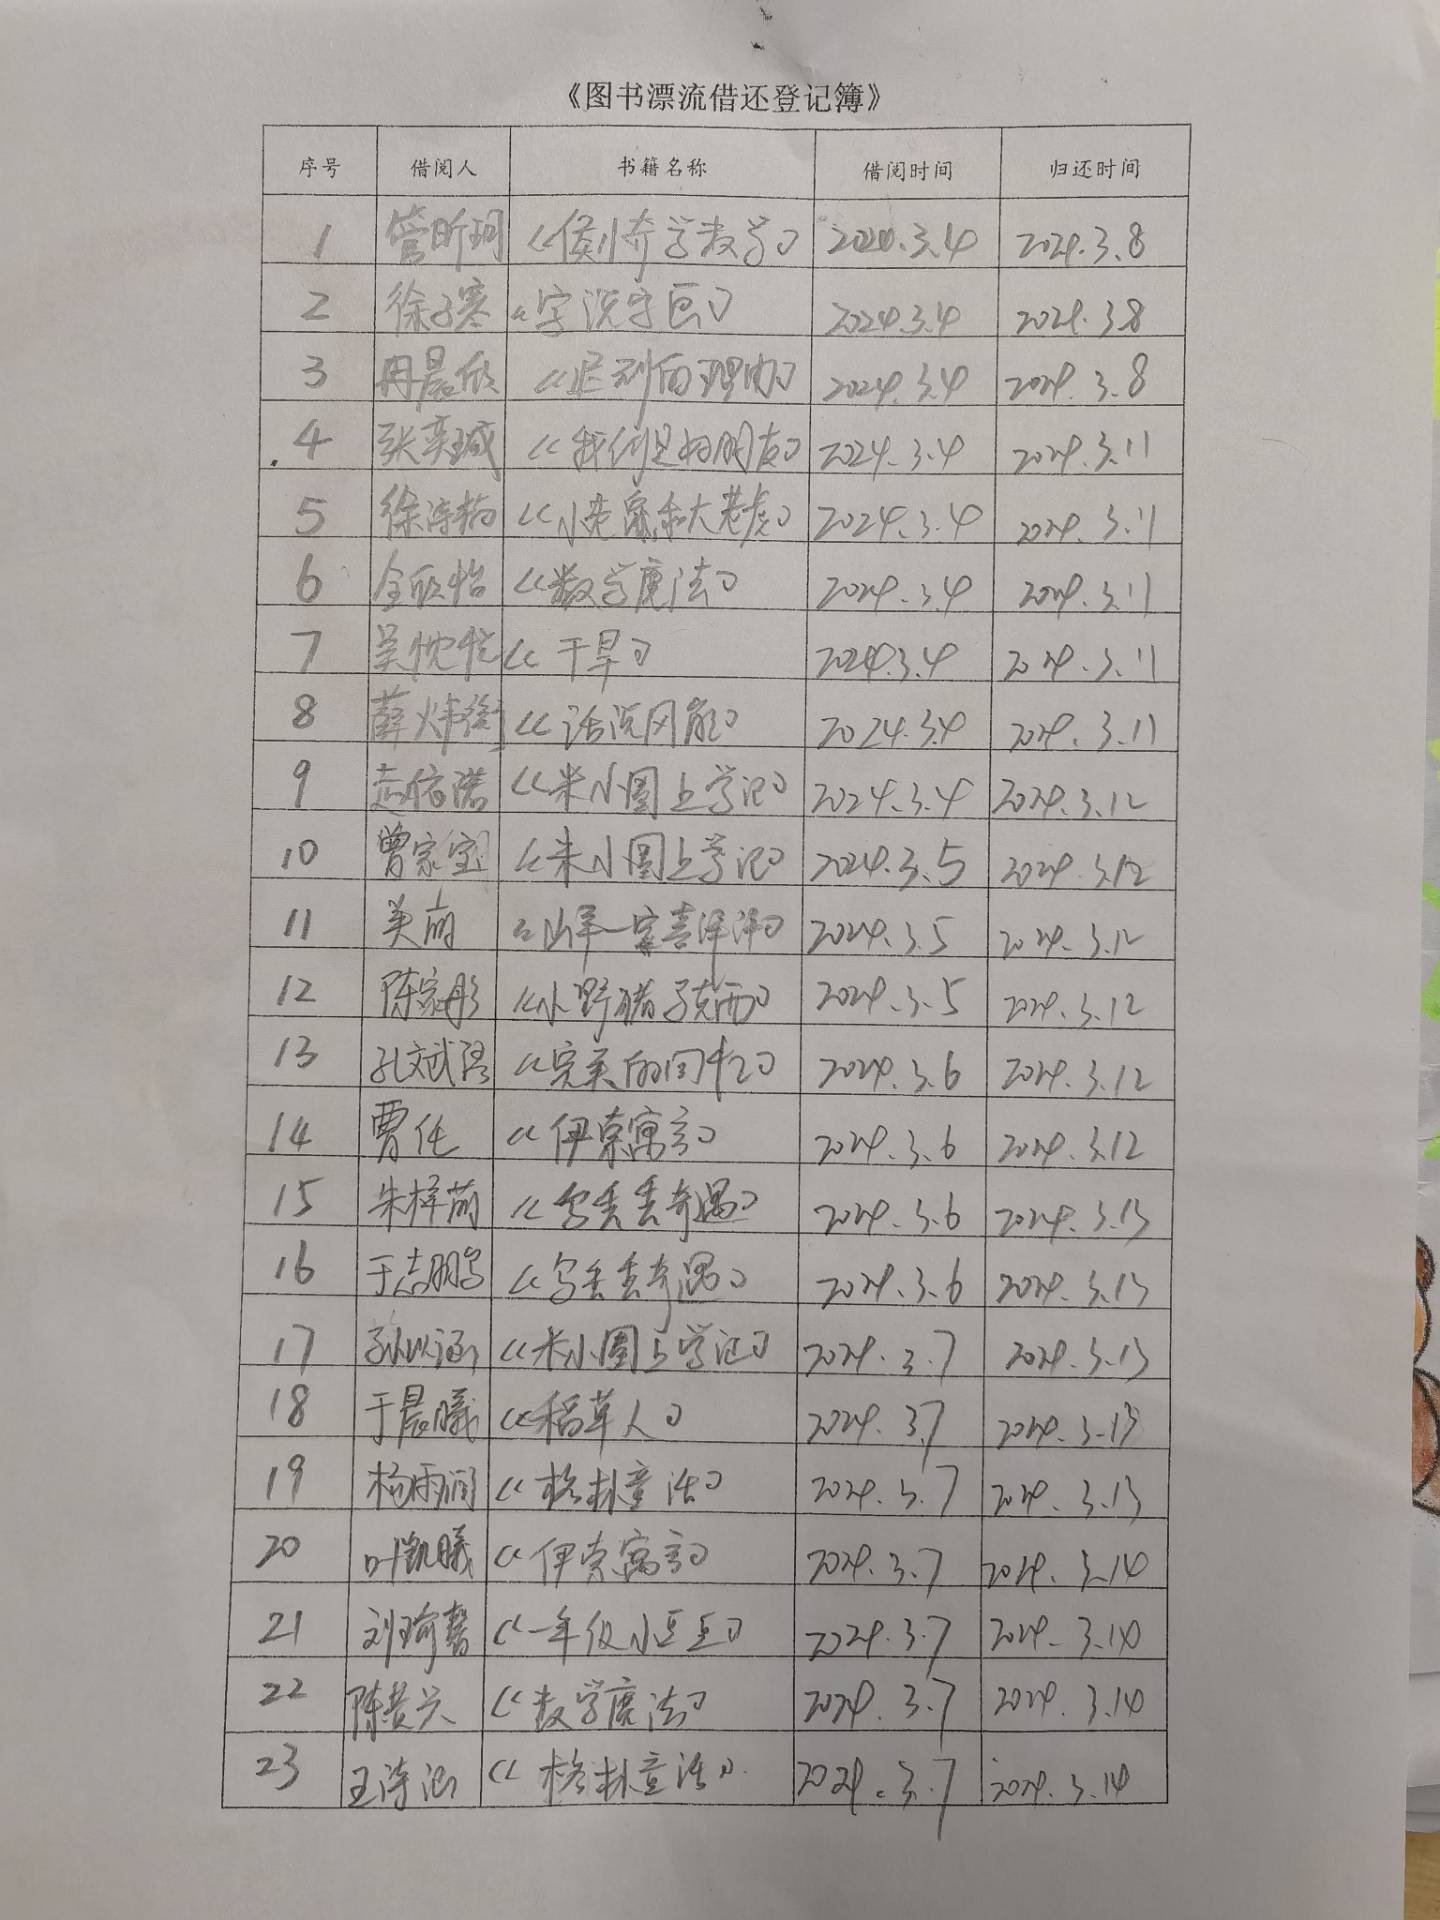 《图书漂流借还登记簿》
序号 借阅人 书籍名称 借阅时间 归还时间
1 管昕玥 《侯小奇学数学》 2024.3.4 2024.3.8
2 徐子寒 《字说字画》 2024.3.4 2024.3.8
3 冉晨欣 《迟到的理由》 2024.3.4 2024.3.8
4 张奕瑊 《我们是好朋友》 2024.3.4 2024.3.11
5 《小老鼠和大老虎》 2024.3.4 2024.3.11
6 全欣怡 《数学魔法》 2024.3.4 2024.3.11
7 吴忱悦 《干旱》 2024.3.4 2024.3.11
8 薛炜衡 《话说风能》 2024.3.4 2024.3.11
9 志信诺 《米小圈上学记》 2024.3.4 2024.3.12
10 曾家宝 《米小圈上学记》 2024.3.5 2024.3.12
11 《山羊一家喜洋洋》 2024.3.5 2024.3.12
12 陈家彤 《小野猪孑克西》 2024.3.5 2024.3.12
13 孔斌语 《完美的同伦》 2024.3.6 2024.3.12
14 曹任 《伊索寓言》 2024.3.6 2024.3.12
15 朱梓萌 《乌丢丢奇遇》 2024.3.6 2024.3.13
16 于志鹏 《乌丢丢奇遇》 2024.3.6 2024.3.13
17 孙以涵 《米小圈上学记》 2024.3.7 2024.3.13
18 于晨曦 《稻草人》 2024.3.7 2024.3.13
19 杨雨润 《格林童话》 2024.3.7 2024.3.13
20 叶凯曦 《伊索寓言》 2024.3.7 2024.3.14
21 刘瑜馨 《一年级小豆豆》 2024.3.7 2024.3.14
22 陈赞兴 《数学魔法》 2024.3.7 2024.3.14
23 王涛涵 《格林童话》 2024.3.7 2024.3.14